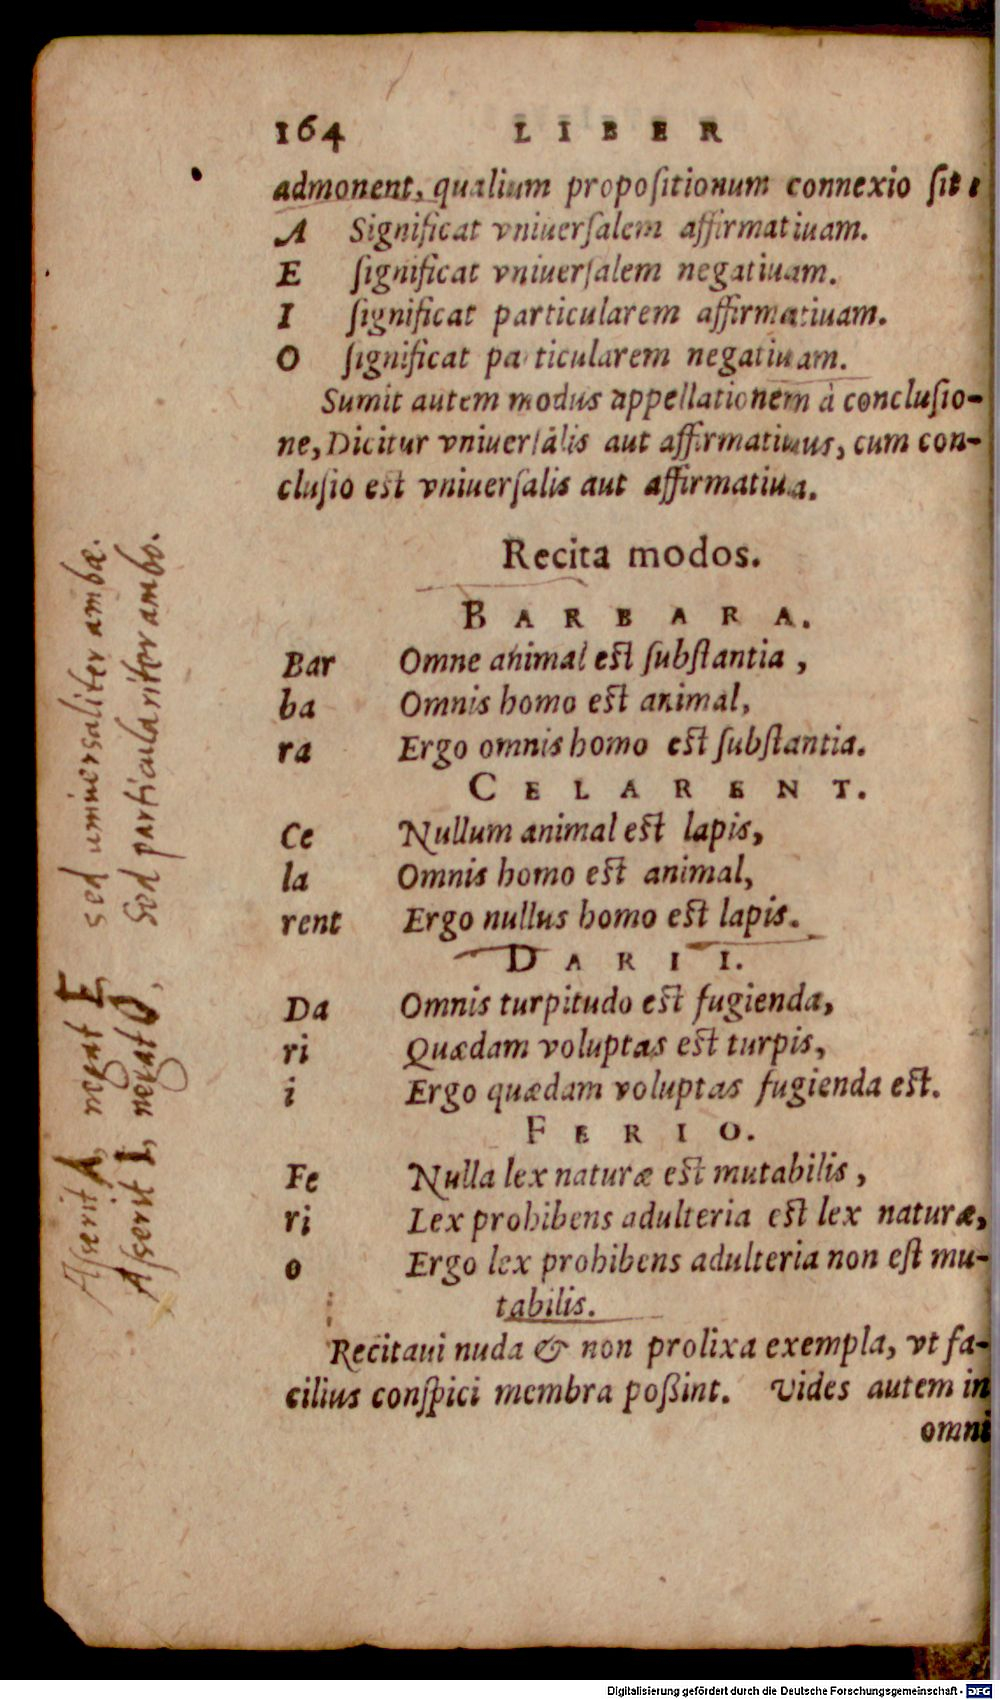 164 LIBER
admonent, qualium propoſitionum connexio ſit:
A Significat vniuerſalem affirmatiuam.
E ſignificat vniuerſalem negatiuam.
I ſignificat particularem affirmatiuam.
O ſignificat particularem negatiuam.
Sumit autem modus appellationem à concluſio-
ne, Dicitur vniuerſalis aut affirmatiuus, cum con-
cluſio est vniuerſalis aut affirmatiua.
Recita modos.
BARBARA.
Bar Omne animal est ſubſtantia,
ba Omnis homo est animal,
ra Ergo omnis homo est ſubſtantia.
CELARENT.
Ce Nullum animal est lapis,
la Omnis homo est animal,
rent Ergo nullus homo est lapis.
DARII.
Da Omnis turpitudo est fugienda,
ri Quædam voluptas est turpis,
i Ergo quædam voluptas fugienda est.
FERIO.
Fe Nulla lex naturæ est mutabilis,
ri Lex prohibens adulteria est lex naturæ,
o Ergo lex prohibens adulteria non eſt mu-
tabilis.
Recitaui nuda & non prolixa exempla, vt fa-
cilius conſpici membra poßint. Vides autem in
omni
Asserit A, negat E sed universaliter ambæ.
Asserit I, negat O, Sed particulariter ambo.
Digitalisierung gefördert durch die Deutsche Forschungsgemeinschaft - DFG